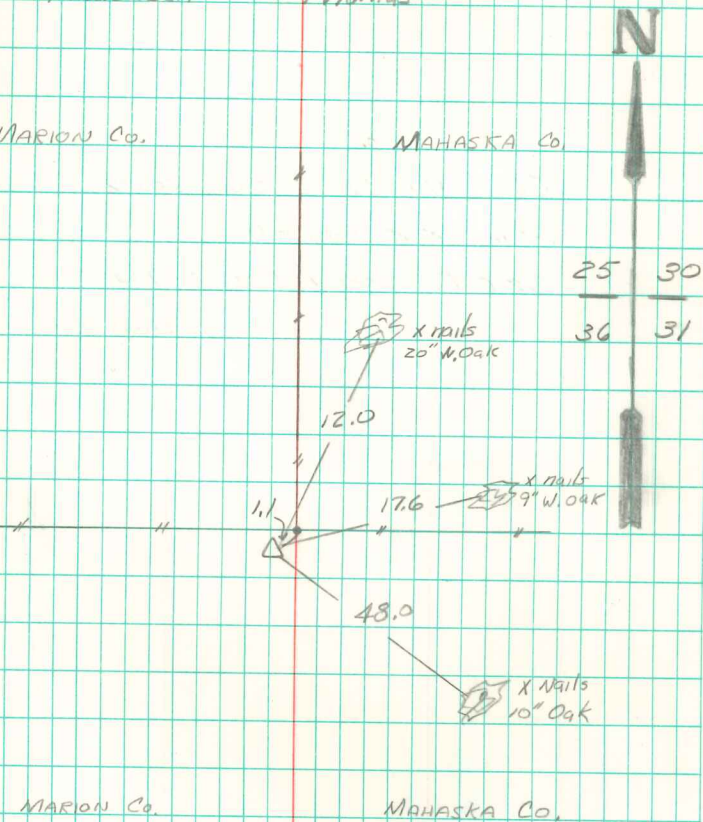 N
MARION CO.
MAHASKA CO.
25 30
36 31
x nails
20" W. Oak
12.0
x nails
9" W. Oak
1.1
17.6
48.0
x Nails
10" Oak
MARION CO.
MAHASKA CO.